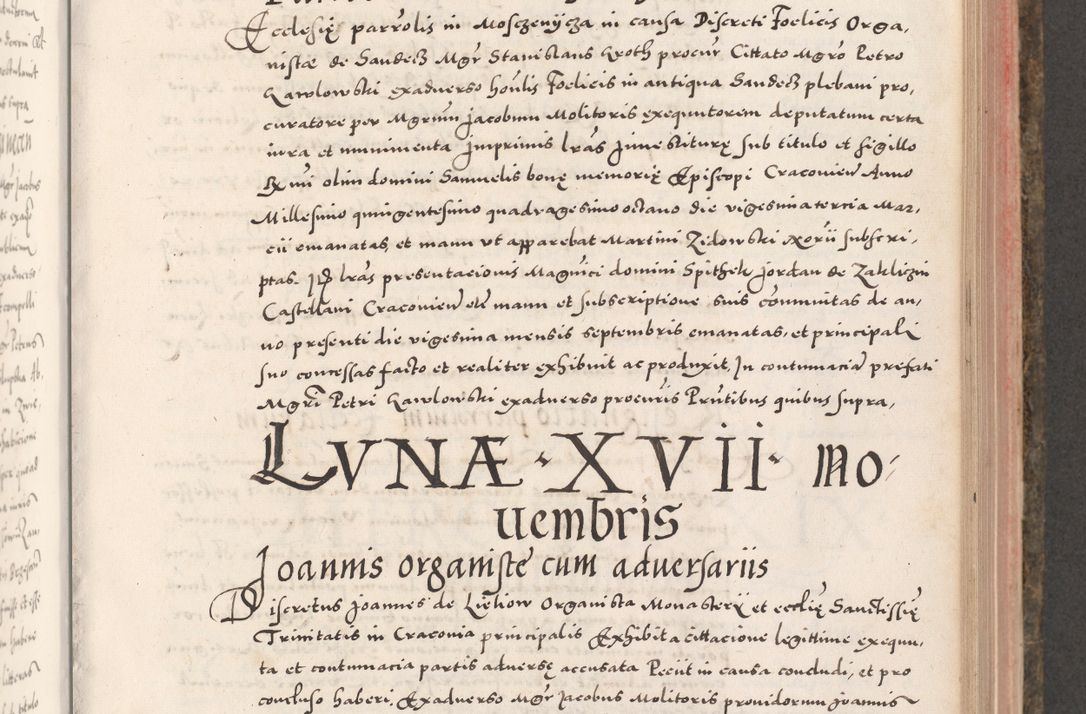 Ecclesię parrolis in Mosczenycza in causa Discreti Foelicis Orga,
nistae de Sandecz Mgr Stanislaus Kroth procur Cittato Mgro Petro
Karolowski exaduerso honlis Foelicis in antiqua Sandecz plebani pro,
curatore per Mgrum Jacobum Molitoris exequutorem deputatum certa
iura et munimenta Jmprimis lras Jnuestiturę sub titulo et sigillo
Rmi olim domini Samuelis bonę memorię Episcopi Cracovien Anno
Millesimo quingentesimo quadragesimo octauo die vigesima tercia Mar,
cii emanatas, et manu vt apparebat Martini Zidowski Norii subscri,
ptas. Jtem lras presentacionis Magnici domini Spithek Jordan de Zakliczin
Castellani Cracovien etc manu et subscriptione suis communitas de an,
no presenti die vigesima mensis septembris emanatas, et principali
suo concessas facto et realiter exhibuit ac produxit, Jn contumacia prefati
Mgri Petri Karolowski exaduerso procuris Prutibus quibus supra,
LVNÆ · XVII · No,
uembris
Joannis organiste cum aduersariis
Discretus Joannes de Organista Monasterii et ecclię Sanctissię
Trinitatis in Cracouia principalis Exhibita cittacione legittime exequu,
ta et contumacia partis aduersę accusata Petiit in causa concludi, et pro
concluso haberi, Exaduerso Mgr Jacobus Molitoris prouidorum Joannis